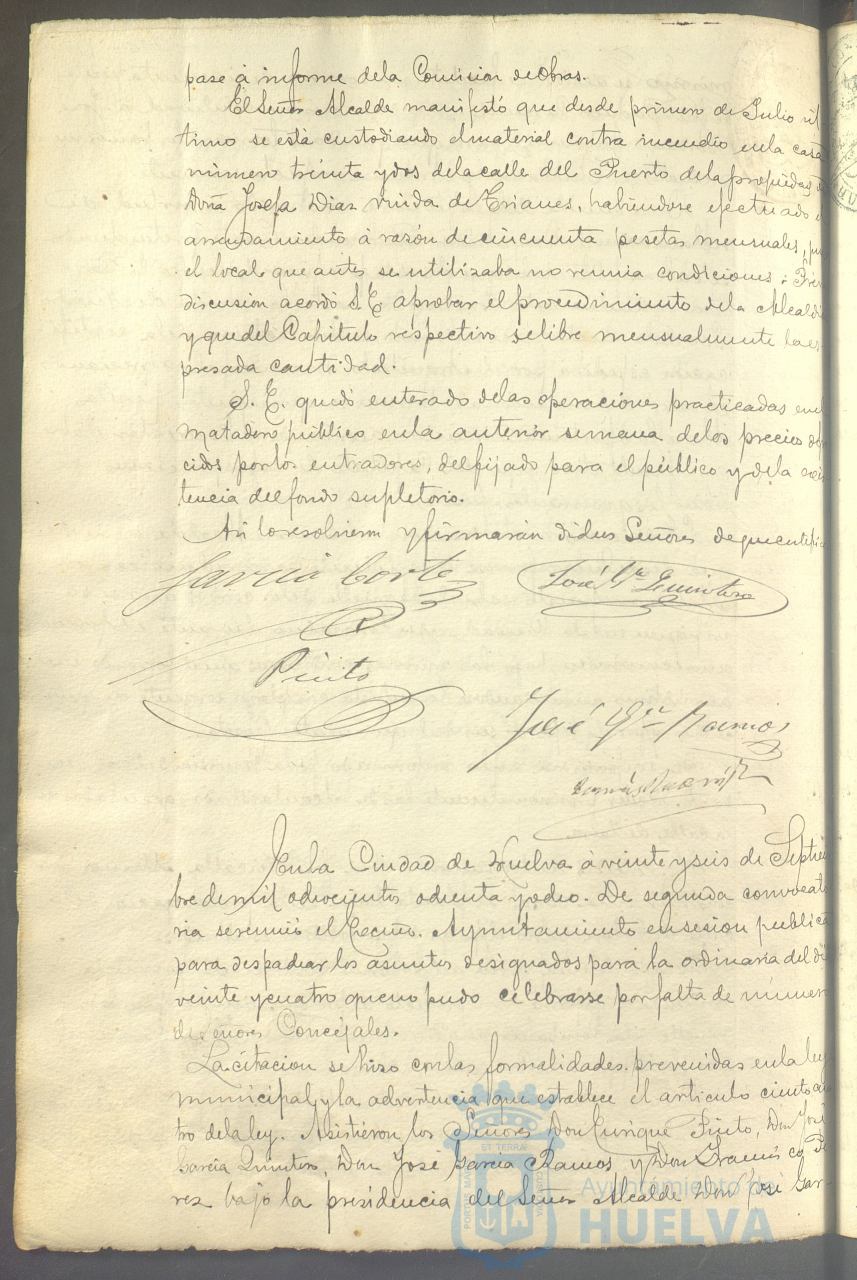 pase á informe dela Comision de Obras.
El Señor Alcalde manifestó que desde primero de Julio úl
timo se está custodiando el material contra incendio en la casa
número treinta y dos de la calle del Puerto de la propiedad
Doña Josefa Diaz viuda de Trianes, habiéndose efectuado
arrendamiento á razón de cincuenta pesetas mensuales,
el local que antes se utilizaba no reunia condiciones: Prévia
discusion acordó S.E. aprobar el procedimiento dela Alcaldía
y que del Capítulo respectivo se libre mensualmente la es
presada cantidad.
S. E. quedó enterado delas operaciones practicadas en el
matadero público en la anterior semana delos precios
cidos por los entradores, del fijado para el público y dela exis
tencia del fondo supletorio.
Así lo resolvieron y firmarán dichos Señores de que certifico
Garcia Corte
José Ga. Quintero
Pinto
José Ga. Ramos
En la Ciudad de Huelva á veinte y seis de Septiem
bre de mil ochocientos ochenta y ocho. De segunda convocato
ria se reunió el Excmo. Ayuntamiento en sesion publica
para despachar los asuntos designados para la ordinaria del dia
veinte y cuatro que no pudo celebrarse por falta de número
de Señores Concejales.
La citacion se hizo con las formalidades prevenidas en la ley
municipal y la advertencia que establece el articulo ciento cua
tro de la ley. Asistieron los Señores Don Enrique Pinto, Don José
Garcia Quintero, Don José Garcia Ramos y Don Francisco Pe
rez bajo la presidencia del Señor Alcalde Don José Gar-
Ayuntamiento de
HUELVA